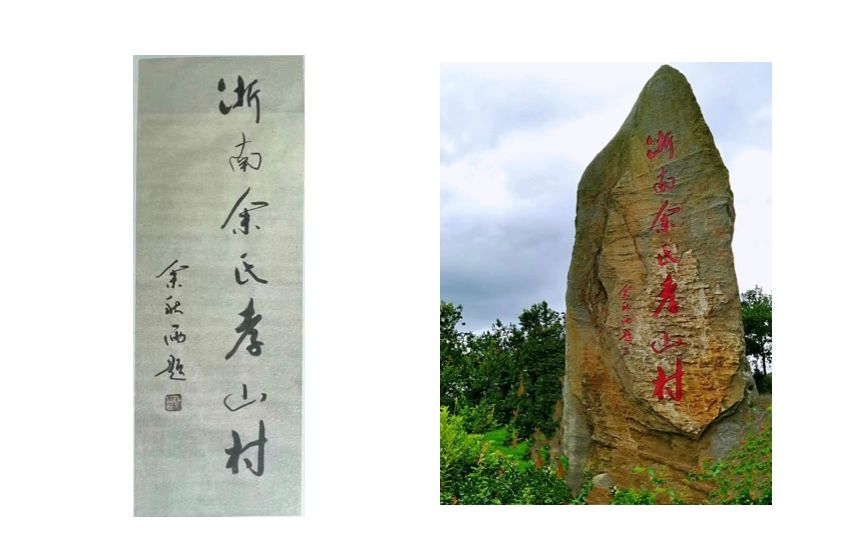 浙南余氏孝山村
余秋雨题
浙南余氏孝山村
余秋雨题